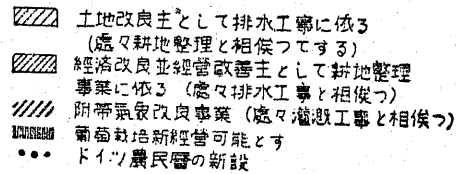 土地改良主として排水工事に依る
(處々耕地整理と相俟つてする)
經済改良並經営改善主として耕地整理
事業に依る (處々排水工事と相俟つ)
附帯氣象改良事業 (處々灌漑工事と相俟つ)
葡萄栽培新經営可能とす
ドイツ農民層の新設